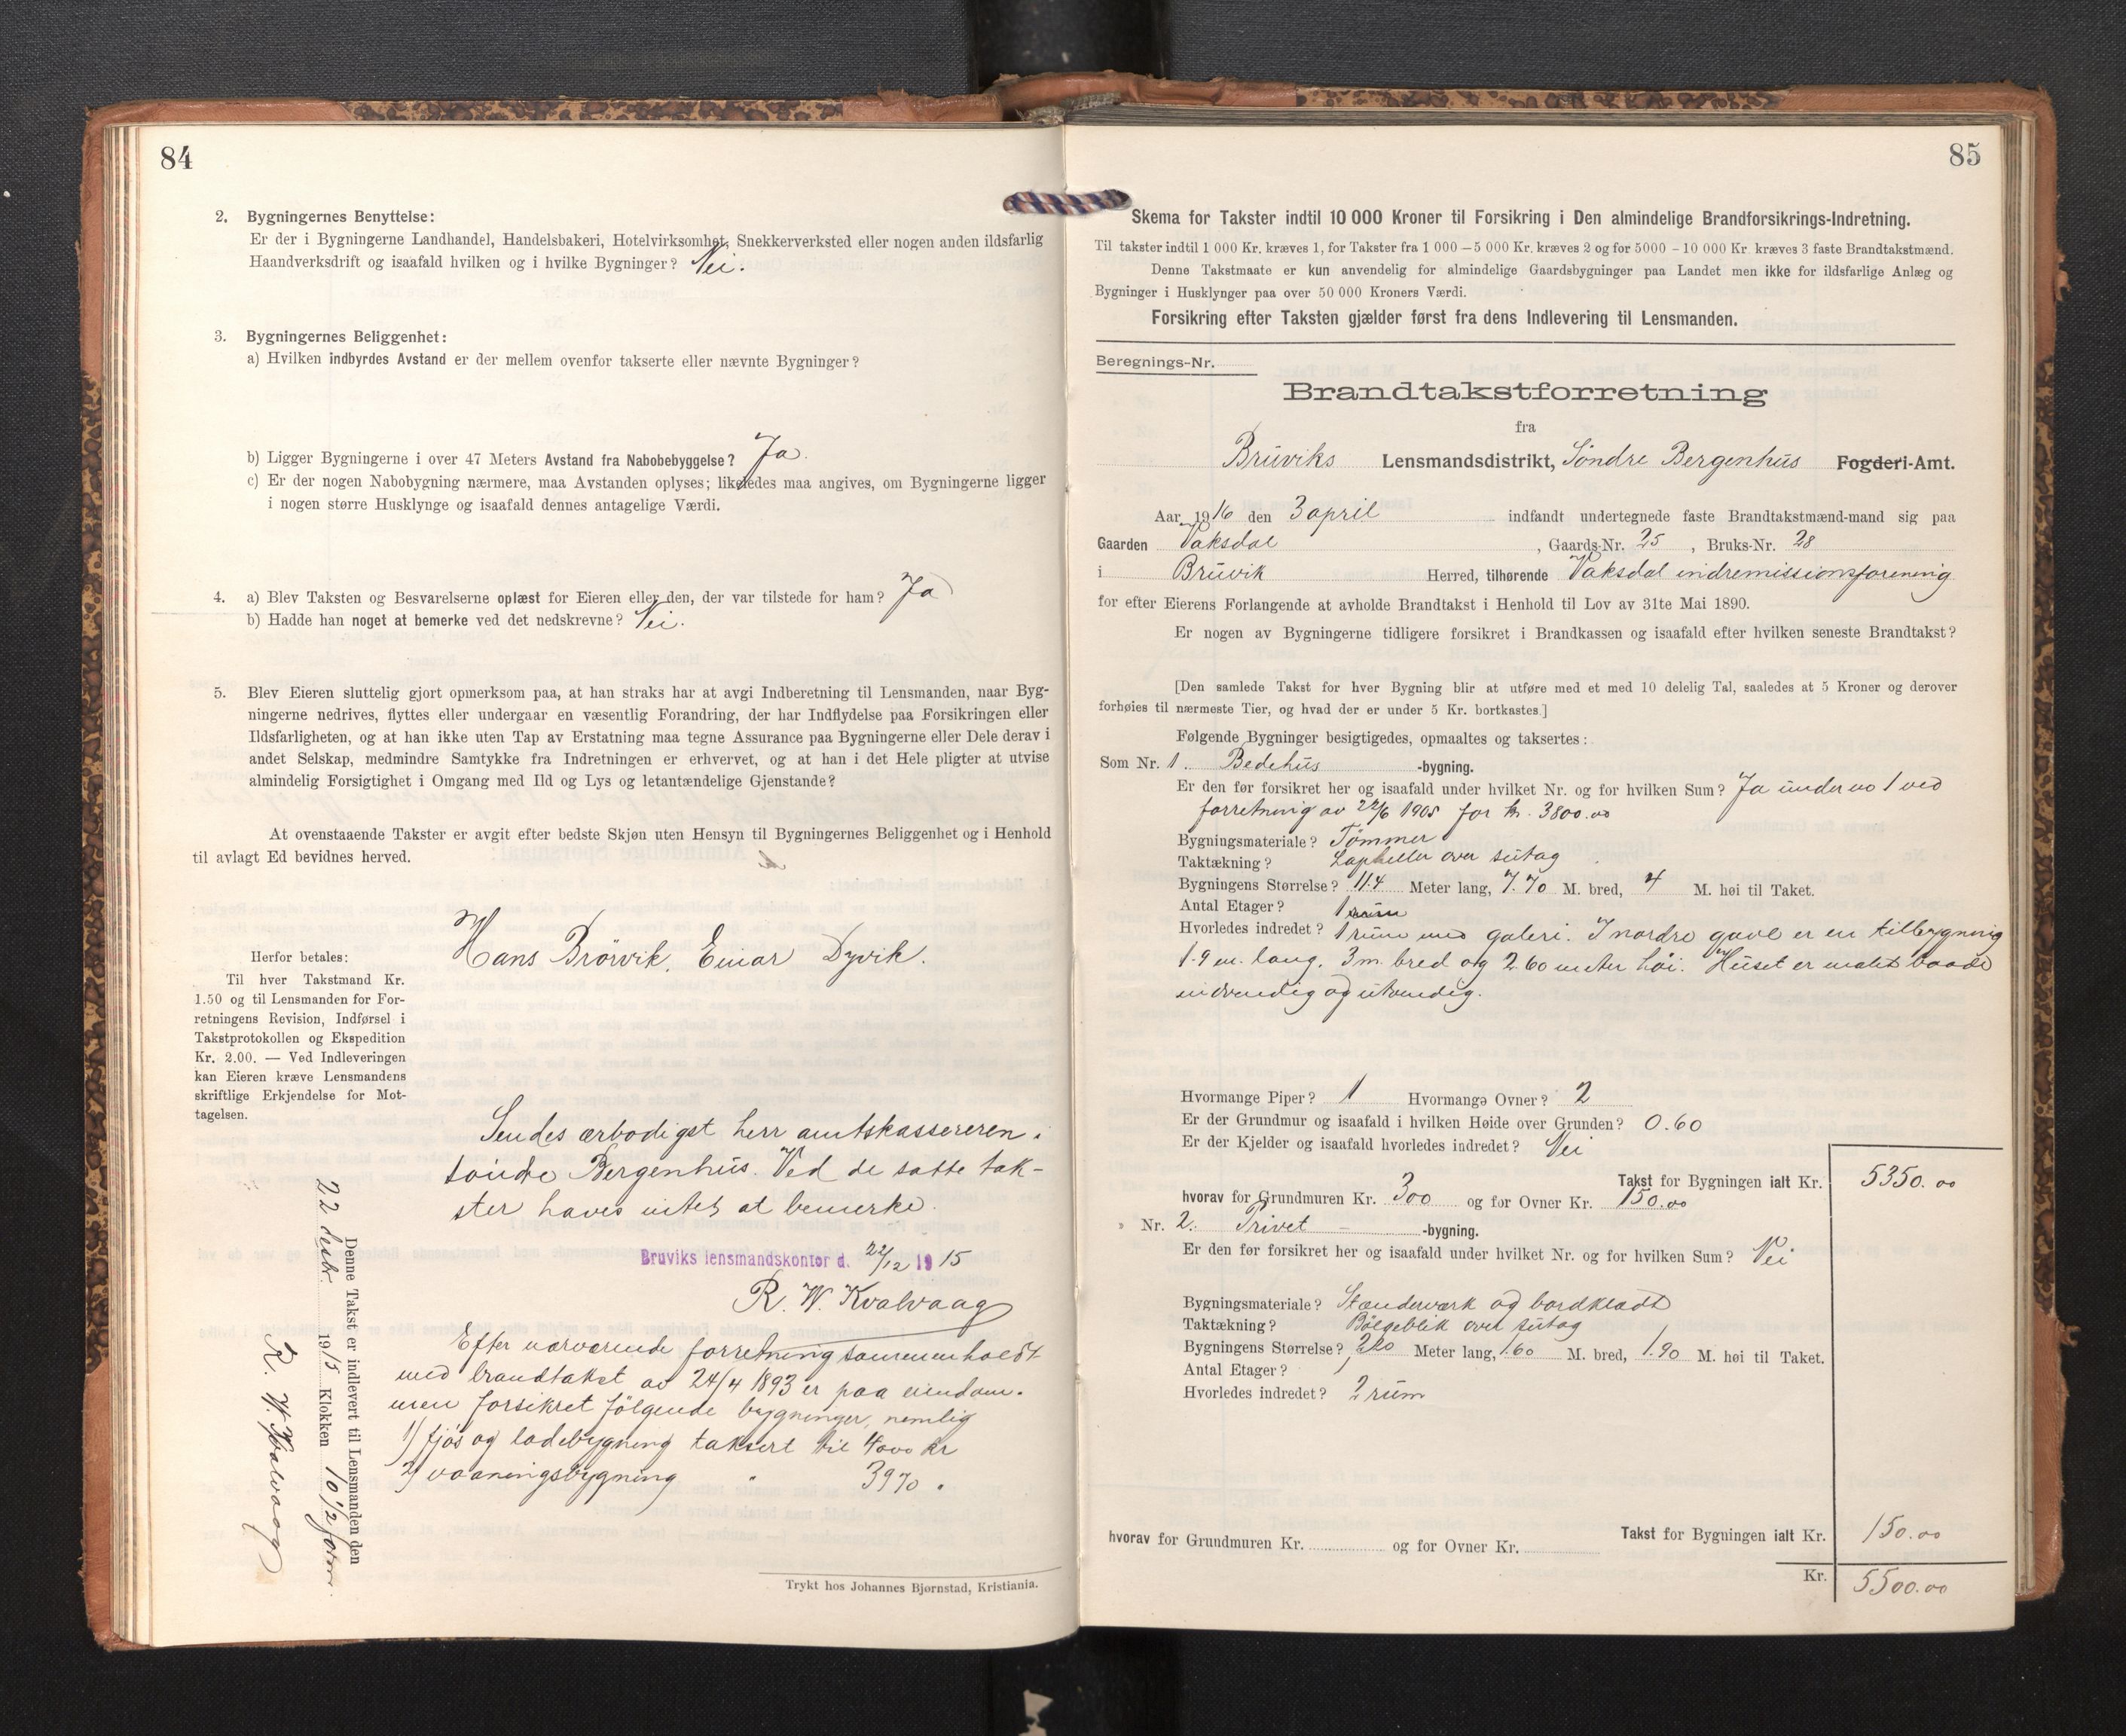 84
2. Bygningernes Benyttelse:
Er der i Bygningerne Landhandel, Handelsbakeri, Hotelvirksomhet, Snekkerverksted eller nogen anden ildsfarlig
Haandverksdrift og isaafald hvilken og i hvilke Bygninger? Nei.
3. Bygningernes Beliggenhet:
a) Hvilken indbyrdes Avstand er der mellem ovenfor takserte eller nævnte Bygninger?
b) Ligger Bygningerne i over 47 Meters Avstand fra Nabobebyggelse? Ja.
c) Er der nogen Nabobygning nærmere, maa Avstanden oplyses; likeledes maa angives, om Bygningerne ligger
i nogen større Husklynge og isaafald dennes antagelige Værdi.
4. a) Blev Taksten og Besvarelserne oplæst for Eieren eller den, der var tilstede for ham? Ja
b) Hadde han noget at bemerke ved det nedskrevne? Nei.
5. Blev Eieren sluttelig gjort opmerksom paa, at han straks har at avgi Indberetning til Lensmanden, naar Byg-
ningerne nedrives, flyttes eller undergaar en væsentlig Forandring, der har Indflydelse paa Forsikringen eller
Ildsfarligheten, og at han ikke uten Tap av Erstatning maa tegne Assurance paa Bygningerne eller Dele derav i
andet Selskap, medmindre Samtykke fra Indretningen er erhvervet, og at han i det Hele pligter at utvise
almindelig Forsigtighet i Omgang med Ild og Lys og letantændelige Gjenstande?
At ovenstaaende Takster er avgit efter bedste Skjøn uten Hensyn til Bygningernes Beliggenhet og i Henhold
til avlagt Ed bevidnes herved.
Hans Brörvik, Einar Dyvik.
Herfor betales:
Til hver Takstmand Kr.
1.50 og til Lensmanden for For-
retningens Revision, Indførsel i
Takstprotokollen og Ekspedition
Kr. 2.00. — Ved Indleveringen
kan Eieren kræve Lensmandens
skriftlige Erkjendelse for Mot-
tagelsen.
Sendes ærbödigst herr amtskassereren i
söndre Bergenhus. Ved de satte tak-
ster haves intet at bemerke.
Bruviks lensmandskontor d. 22/12 1915
R. W. Kvalvaag
Efter nærværende forretning sammenholdt
med brandtakst av 24/4 1893 er paa eiendom-
men forsikret fölgende bygninger, nemlig
1) fjös og ladebygning taksert til 4000 kr
2) vaaningsbygning " 3970 "
Denne Takst er indlevert til Lensmanden den
22 desbr. 1915 Klokken 10 1/2 form.
R. W. Kvalvaag
Trykt hos Johannes Bjørnstad, Kristiania.
85
Skema for Takster indtil 10 000 Kroner til Forsikring i Den almindelige Brandforsikrings-Indretning.
Til takster indtil 1 000 Kr. kræves 1, for Takster fra 1 000 – 5 000 Kr. kræves 2 og for 5000 – 10 000 Kr. kræves 3 faste Brandtakstmænd.
Denne Takstmaate er kun anvendelig for almindelige Gaardsbygninger paa Landet men ikke for ildsfarlige Anlæg og
Bygninger i Husklynger paa over 50 000 Kroners Værdi.
Forsikring efter Taksten gjælder først fra dens Indlevering til Lensmanden.
Beregnings-Nr.
Brandtakstforretning
fra
Brüviks Lensmandsdistrikt, Söndre Bergenhüs Fogderi-Amt.
Aar 1916 den 3 april indfandt undertegnede faste Brandtakstmænd-mand sig paa
Gaarden Vaksdal, Gaards-Nr. 25, Bruks-Nr. 28
i Brüvik Herred, tilhørende Vaksdal indremissionsforening
for efter Eierens Forlangende at avholde Brandtakst i Henhold til Lov av 31te Mai 1890.
Er nogen av Bygningerne tidligere forsikret i Brandkassen og isaafald efter hvilken seneste Brandtakst?
[Den samlede Takst for hver Bygning blir at utføre med et med 10 delelig Tal, saaledes at 5 Kroner og derover
forhøies til nærmeste Tier, og hvad der er under 5 Kr. bortkastes.]
Følgende Bygninger besigtigedes, opmaaltes og taksertes:
Som Nr. 1. Bedehüs -bygning.
Er den før forsikret her og isaafald under hvilket Nr. og for hvilken Sum? Ja under no 1 ved
forretning av 22/6 1905 for kr. 3800.00
Bygningsmateriale? Tömmer
Taktækning? Lapheller over sütag
Bygningens Størrelse? 11.4 Meter lang, 7.70 M. bred, 4 M. høi til Taket.
Antal Etager? 1
Hvorledes indredet? 1 rüm med galeri. I nordre gavl er en tilbygning
1.9 m. lang, 3 m. bred og 2.60 meter høi. Hüset er malet baade
indvendig og utvendig.
Hvormange Piper? 1 Hvormange Ovner? 2
Er der Grundmur og isaafald i hvilken Høide over Grunden? 0.60
Er der Kjelder og isaafald hvorledes indredet? Nei
Takst for Bygningen ialt Kr. 5350.00
hvorav for Grundmuren Kr. 300 og for Ovner Kr. 150.00
Nr. 2. Privet -bygning.
Er den før forsikret her og isaafald under hvilket Nr. og for hvilken Sum? Nei
Bygningsmateriale? Stenderværk og bordklædt
Taktækning? Bölgeblik over sütag
Bygningens Størrelse? 2.20 Meter lang, 1.60 M. bred, 1.90 M. høi til Taket.
Antal Etager? 1
Hvorledes indredet? 2 rüm
Takst for Bygningen ialt Kr. 150.00
hvorav for Grundmuren Kr. og for Ovner Kr.
Kr. 5500.00